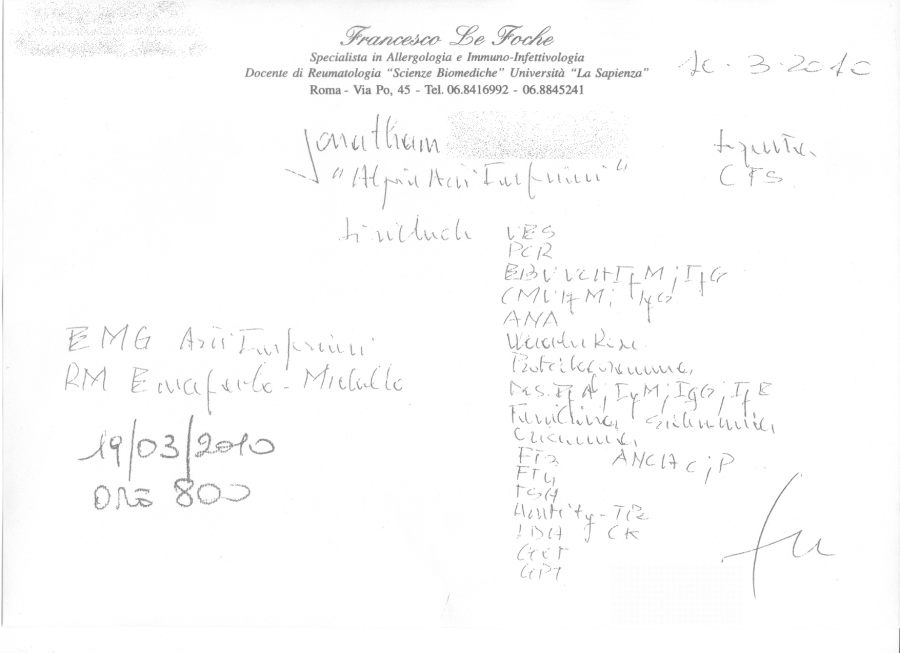 Francesco Le Foche
Specialista in Allergologia e Immuno-Infettivologia
Docente di Reumatologia "Scienze Biomediche" Università "La Sapienza"
Roma - Via Po, 45 - Tel. 06.8416992 - 06.8845241
10.3.2010
Jonathan
CFS
VES
PCR
EBV VCA IgM; IgG
CMV IgM; IgG
ANA
Waaler Rose
Dos. IgA; IgM; IgG; IgE
FT3 ANCA c; p
FT4
TSH
LDH CK
GOT
GPT
EMG Arti Inferiori
RM Encefalo - Midollo
19/03/2010
ORE 800